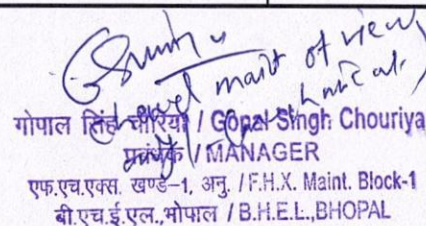 maint of view
गोपाल सिंह चौरिया / Gopal Singh Chouriya
प्रबंधक / MANAGER
एफ.एच.एक्स. खण्ड-1, अनु. / F.H.X. Maint. Block-1
बी.एच.ई.एल.,भोपाल / B.H.E.L.,BHOPAL